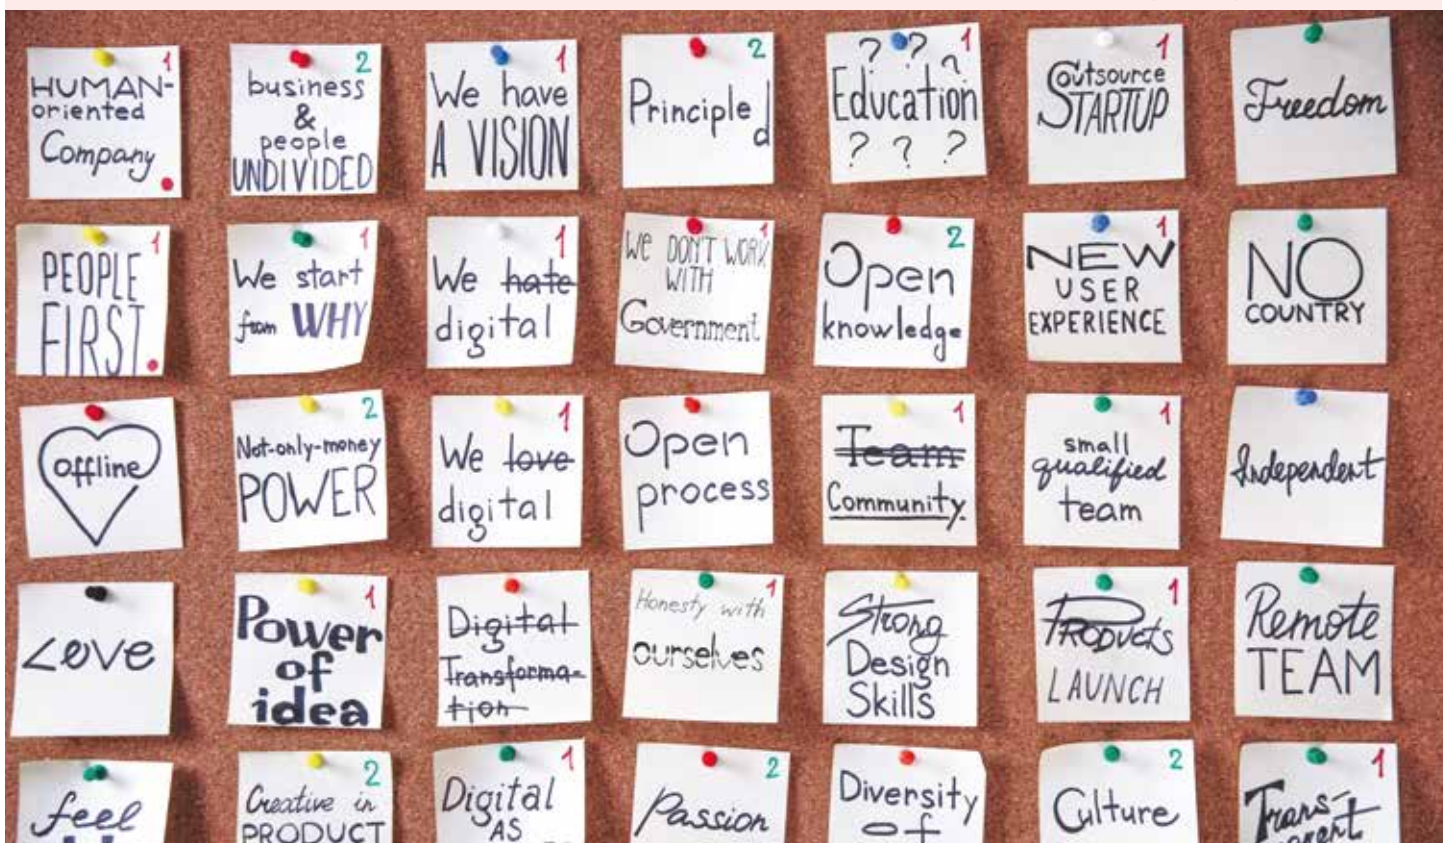 1
HUMAN-
oriented
Company
2
business
&
people
UNDIVIDED
1
We have
A VISION
2
Principled
? ? ? 1
Education
? ? ?
1
Outsource
STARTUP
Freedom
1
PEOPLE
FIRST
1
We start
from WHY
1
We hate
digital
1
We DON'T WORK
WITH
Government
2
Open
knowledge
1
NEW
USER
EXPERIENCE
NO
COUNTRY
offline
2
Not-only-money
POWER
1
We love
digital
Open
process
1
Team
Community.
1
small
qualified
team
Independent
Love
1
Power
of
idea
Digital
Transforma-
tion
1
Honesty with
ourselves
Strong
Design
Skills
1
PRODUCTS
LAUNCH
Remote
TEAM
feel
2
Creative in
PRODUCT
1
Digital
AS
2
Passion
Diversity
of
2
Culture
1
Trans-
parent